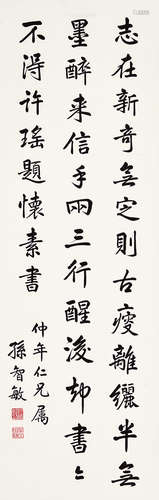 志在新奇無定則古瘦離纚半無
墨醉來信手兩三行醒後却書〻
不得許瑤題懷素書
仲年仁兄屬
孫智敏